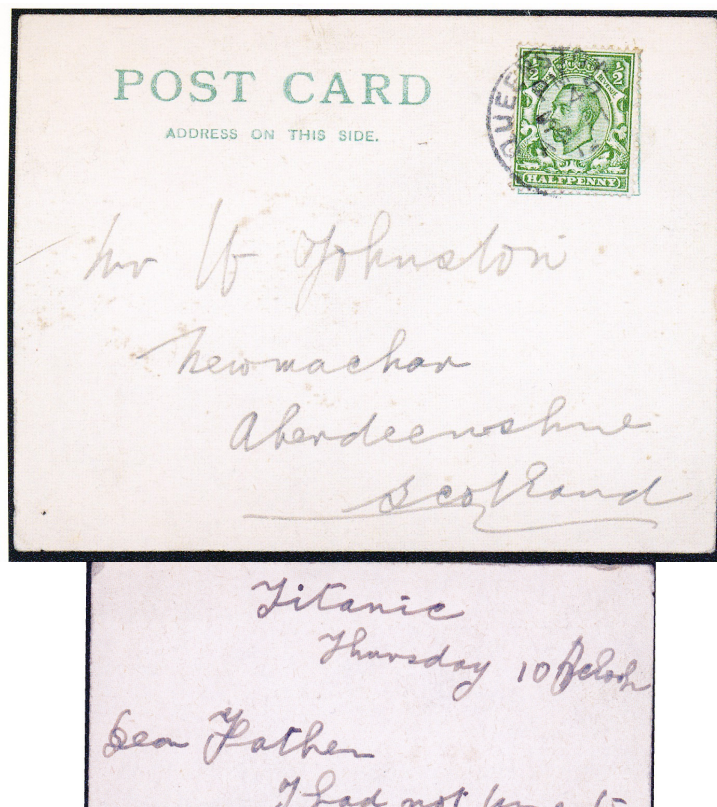 POST CARD
ADDRESS ON THIS SIDE.
½ ½
HALFPENNY
Mr W Johnston
Newmachar
Aberdeenshire
Scotland
Titanic
Thursday 10 Oclock
Dear Father
I had not